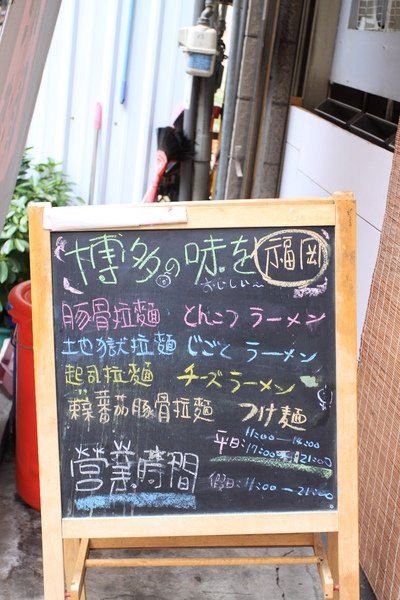 博多の味を 福岡
おいしい〜
豚骨拉麵 とんこつ ラーメン
地獄拉麵 じごく ラーメン
起司拉麵 チーズラーメン
蕃茄豚骨拉麵 つけ麵
營業時間
平日:11:00—14:00
17:00 21:00
假日:11:00—21:00